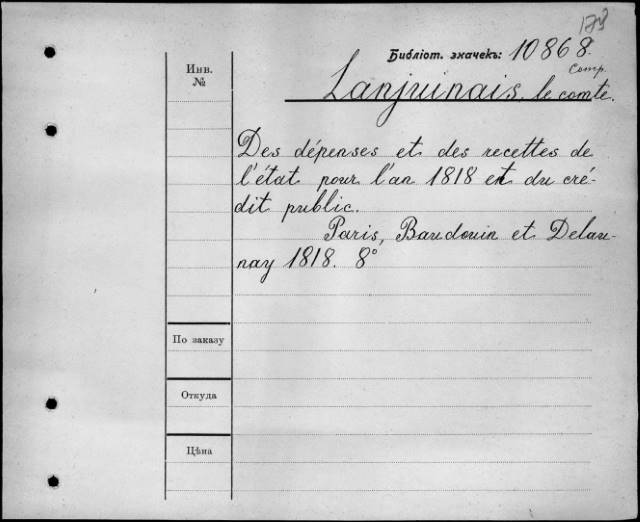 173
Библіот. значекъ: 10868.
Comp.
Инв.
№
Lanjuinais, le comte.
Des dépenses et des recettes de
l'état pour l'an 1818 et du cré-
dit public.
Paris, Baudouin et Delau-
nay 1818. 8°
По заказу
Откуда
Цѣна